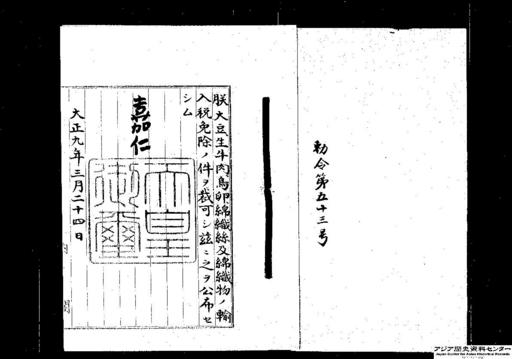 勅令第五十三号
朕大豆生牛肉鳥卵綿織絲及綿織物ノ輸
入税免除ノ件ヲ裁可シ茲ニ之ヲ公布セ
シム
嘉仁
天皇御璽
大正九年三月二十四日
内閣
アジア歴史資料センター
Japan Center for Asian Historical Records